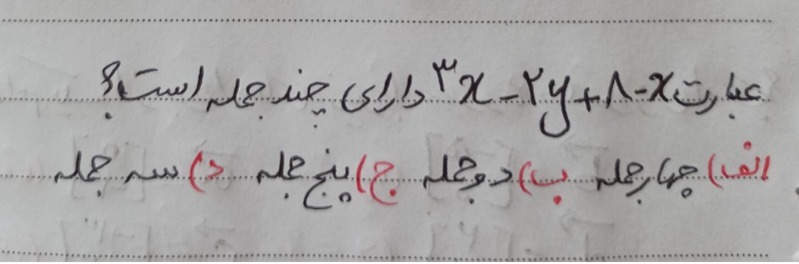 عبارت ۳x-۲y+۸-x دارای چند جمله است؟
الف) چهار جمله ب) دو جمله ج) پنج جمله د) سه جمله